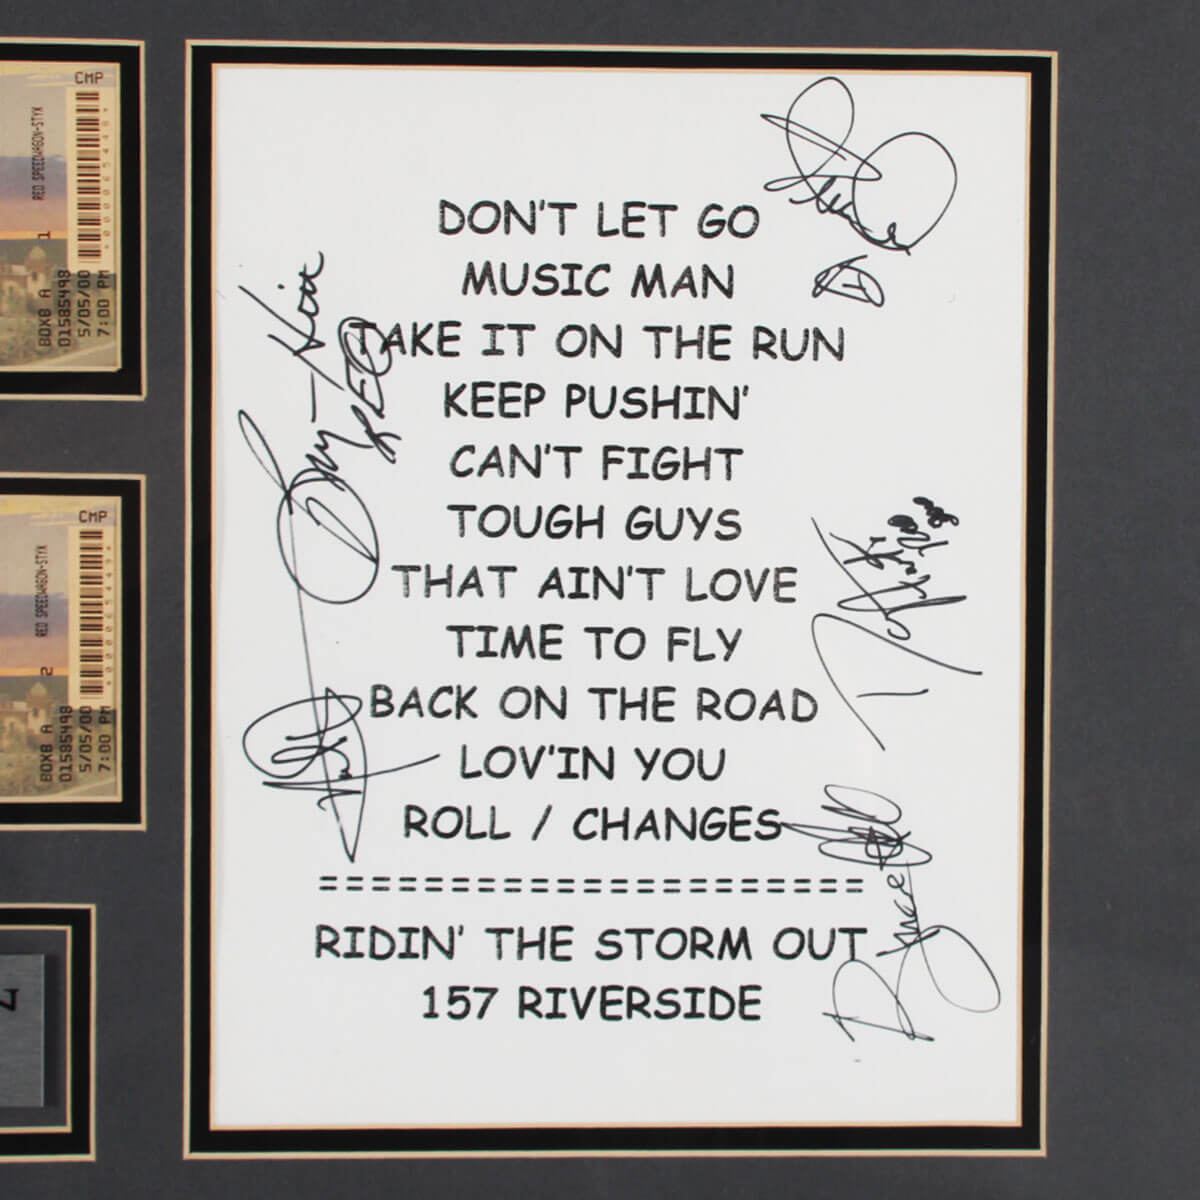 CMP
REO SPEEDWAGON-STYX
BOX8 A 1
D1585498
5/05/00
7:00 PM
CMP
REO SPEEDWAGON-STYX
BOX8 A 2
D1585498
5/05/00
7:00 PM
DON'T LET GO
MUSIC MAN
TAKE IT ON THE RUN
KEEP PUSHIN'
CAN'T FIGHT
TOUGH GUYS
THAT AIN'T LOVE
TIME TO FLY
BACK ON THE ROAD
LOV'IN YOU
ROLL / CHANGES
=====================
RIDIN' THE STORM OUT
157 RIVERSIDE
REO